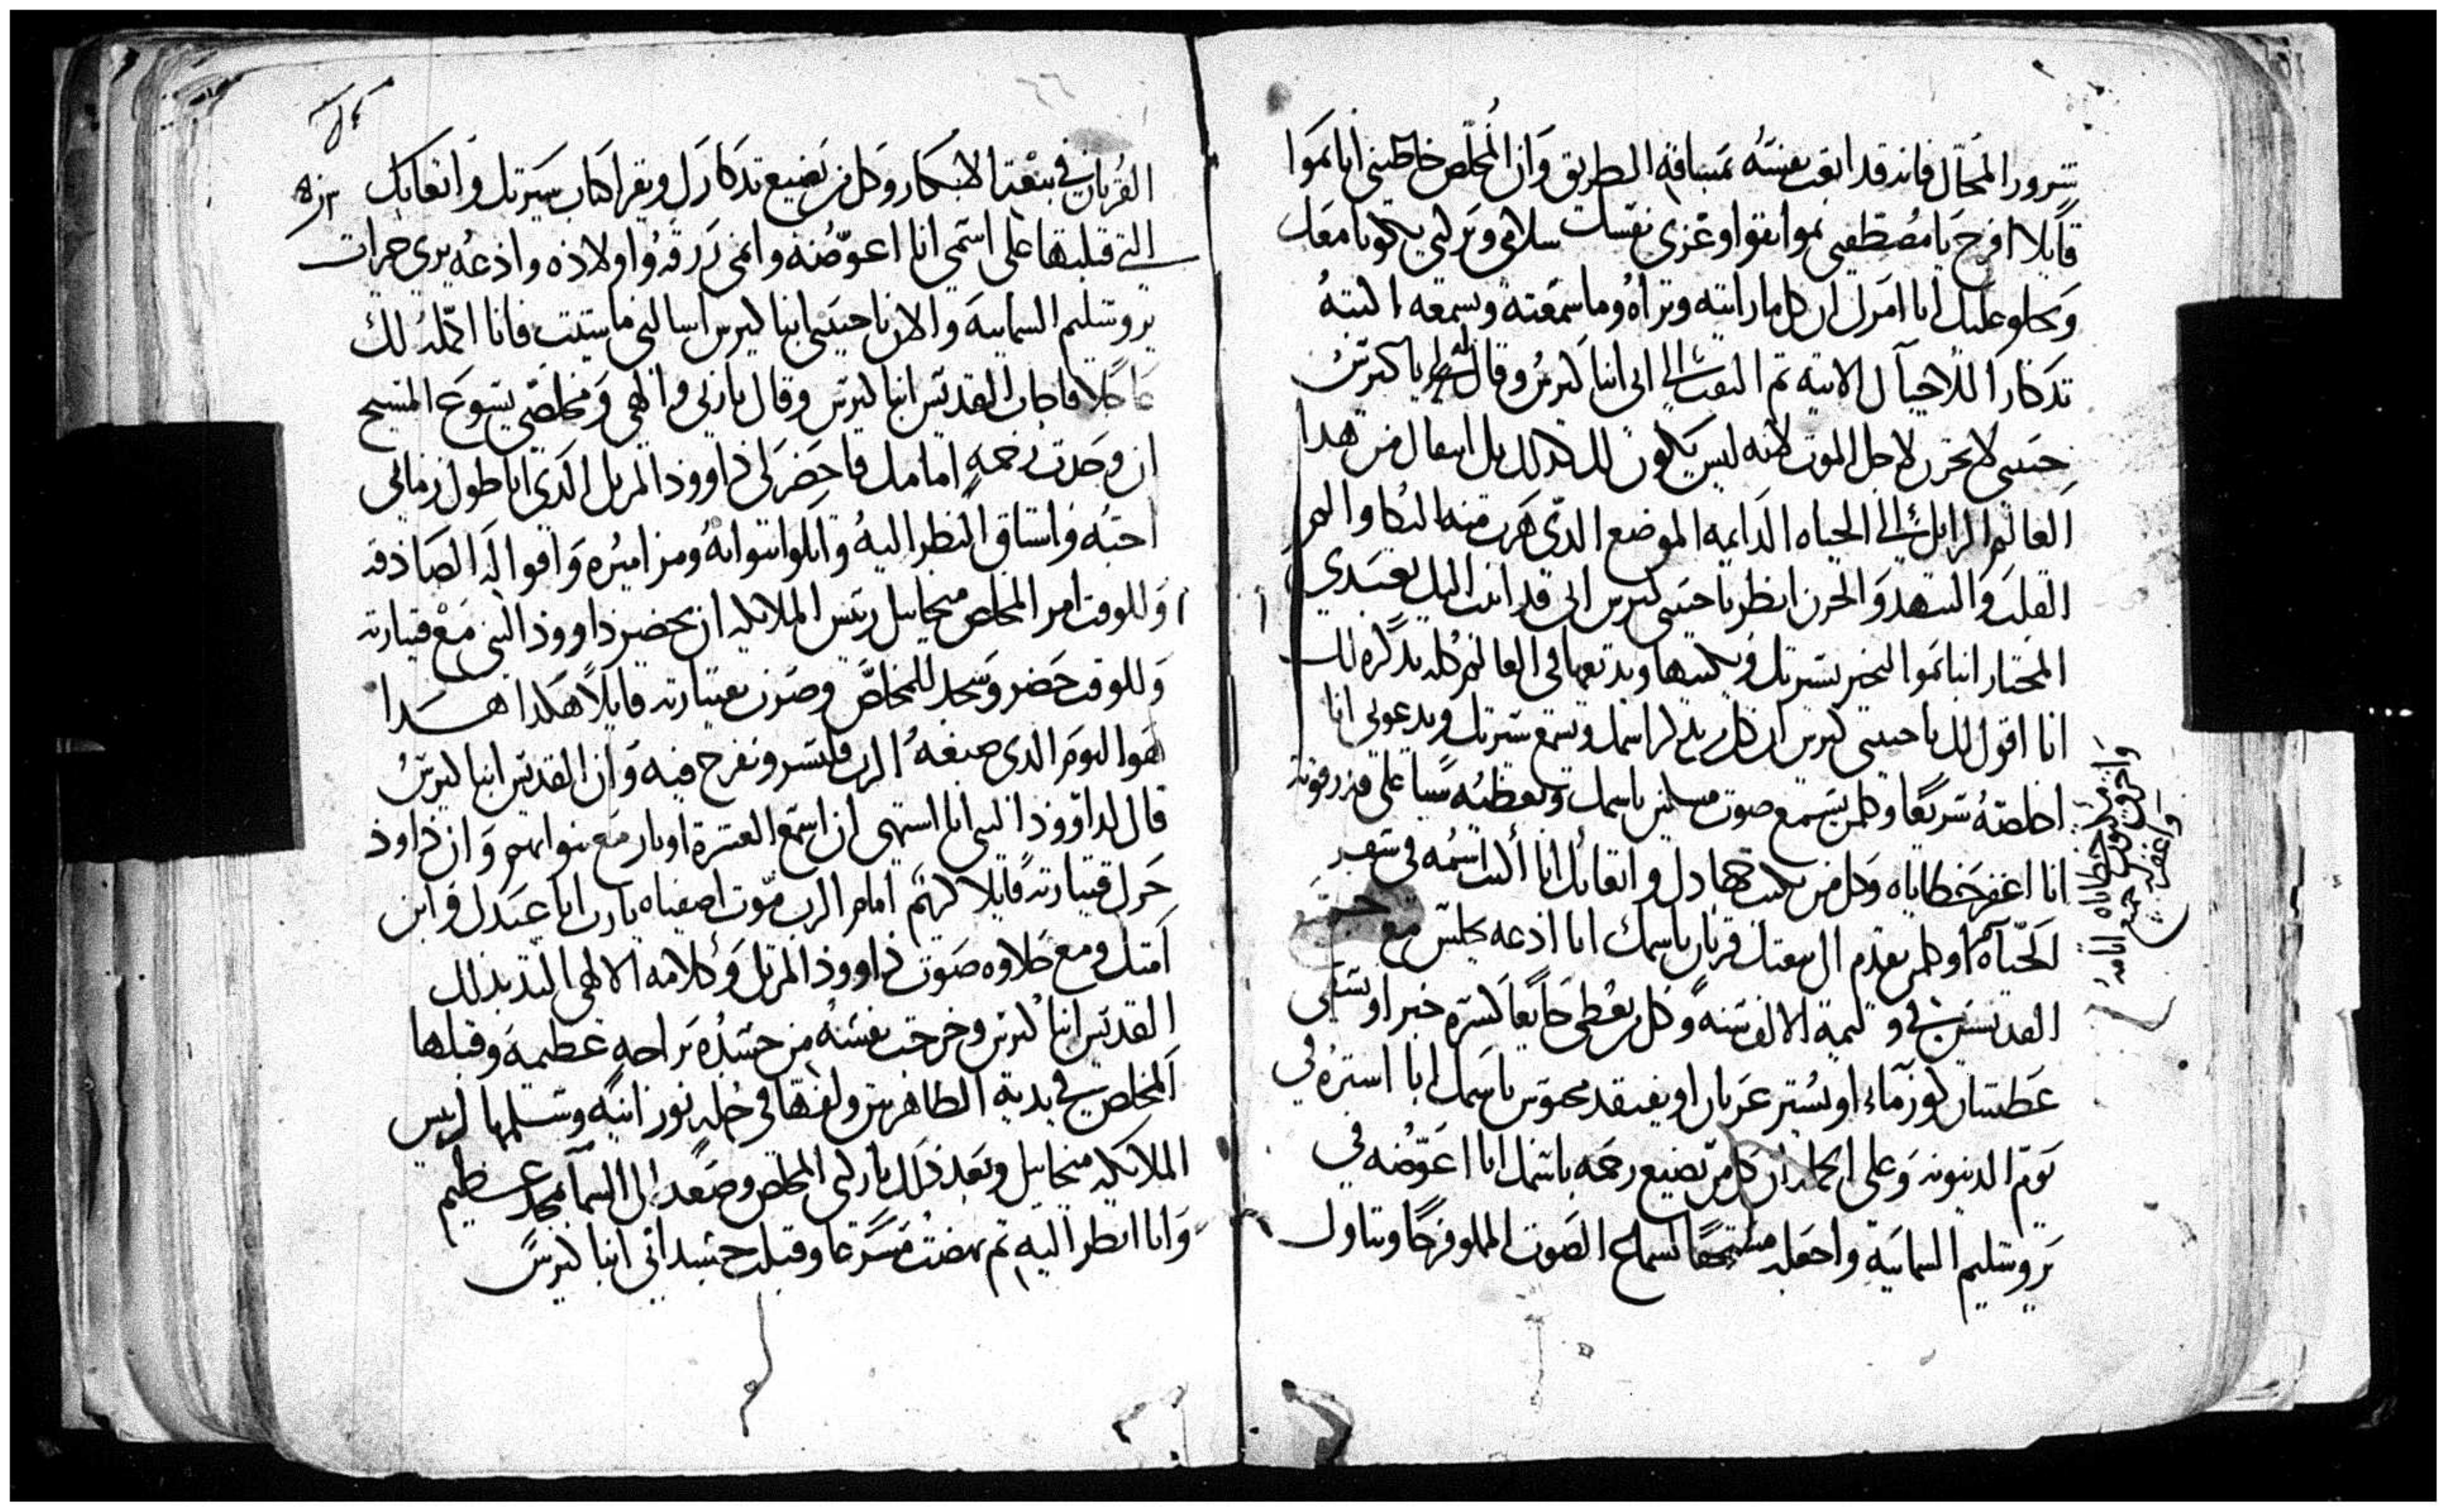 سرور المحال فانه قد اتعب نفسه بمسافة الطريق وان المخلص خاطبني انا بموا
قايلا افرح يا مصطفيى بموا تقوا وعزى نفسك سلامى وبركتي يكونا معك
وتحلو عليك انا امرك ان كل ما راىته وتراه وما سمعته وتسمعه اكتبه
تدكارا للاجيال الاتيه تم التفت الى انبا كيرس وقال له يا كيرس
حبيبى لا تحزن لاجل الموت لانه ليس يكون لك كدلك بل انتقال من هدا
العالم الزايل الى الحياه الدايمه الموضع الدى هرب منه البكا والهم
القلب والتنهد والحزن انظر يا حبيبى كيرس انى قد اتيت اليك بعبدي
المختار انبا بموا ليخبر بسيرتك ويكتبها ويديعها في العالم كله تدكره لك
انا اقول لك يا حبيبى كيرس ان كل من يدكر اسمك ويسمع سيرتك ويدعونى انا
اخلصه سريعا وكلمن يسمع صوت مسكين باسمك ويعطيه شيا على قدر قوته
انا اغفر خطاياه وكل من يكتب جهادك واتعابك انا اكتب اسمه في سفر
الحياه وكلمن يقدم الى بيعتك قربان باسمك انا ادعه يجلس مع
القديسين في وليمة الالف سنه وكل من يعطى جايعا كسرة خبز او يسقى
عطشان كوز ماء او يستر عريان او يفتقد محبوس باسمك انا استره في
يوم الدينونه وعلى الجمله ان كل من يصنع رحمه باسمك انا اعوضه في
يروشليم السمايية واجعله مستحقا لسماع الصوت المملو فرحا وتناول
القربان في بيعة الابكار وكل من يصنع تدكارك ويقرا كتاب سيرتك واتعابك
التي قبلتها على اسمي انا اعوضه وانمى رزقه واولاده وادعه يرى خيرات
يروشليم السماييه والان يا حبيبى انبا كيرس اسالني ما شيت فانا اكمله لك
عاجلا فاجاب القديس انبا كيرس وقال يا ربى والهي ومخلصي يسوع المسيح
ان وجدت رحمه امامك فاحضر لى داوود المرتل الدى انا طول زمانى
احبه واشتاق النظر اليه واتلوا نبواته ومزاميره واقواله الصادقه
وللوقت امر المخلص ميخاييل رييس الملايكه ان يحضر داوود النبي مع قيتارته
وللوقت حضر وسجد للمخلص وضرب بقيتارته قايلا هكدا هدا
هوا اليوم الدى صنعه الرب فلنسر ونفرح فيه وان القديس انبا كيرس
قال لداوود النبى انا اشتهى ان اسمع العشرة اوتار مع نبواتهم وان داود
حرك قيتارته قايلا كريم امام الرب موت اصفياه يا رب انا عبدك وابن
امتك ومع حلاوه صوت داوود المرتل وكلامه الالهي التد بدلك
القديس انبا كيرس وخرجت نفسه من جسده براحه عظيمه وقبلها
المخلص في يديه الطاهرتين ولفها في حله نورانيه وسلمها لرييس
الملايكه ميخاييل وبعد دلك باركني المخلص وصعد الى السما بمجد عظيم
وانا انظر اليه تم نهضت مسرعا وقبلت جسد ابى انبا كيرس